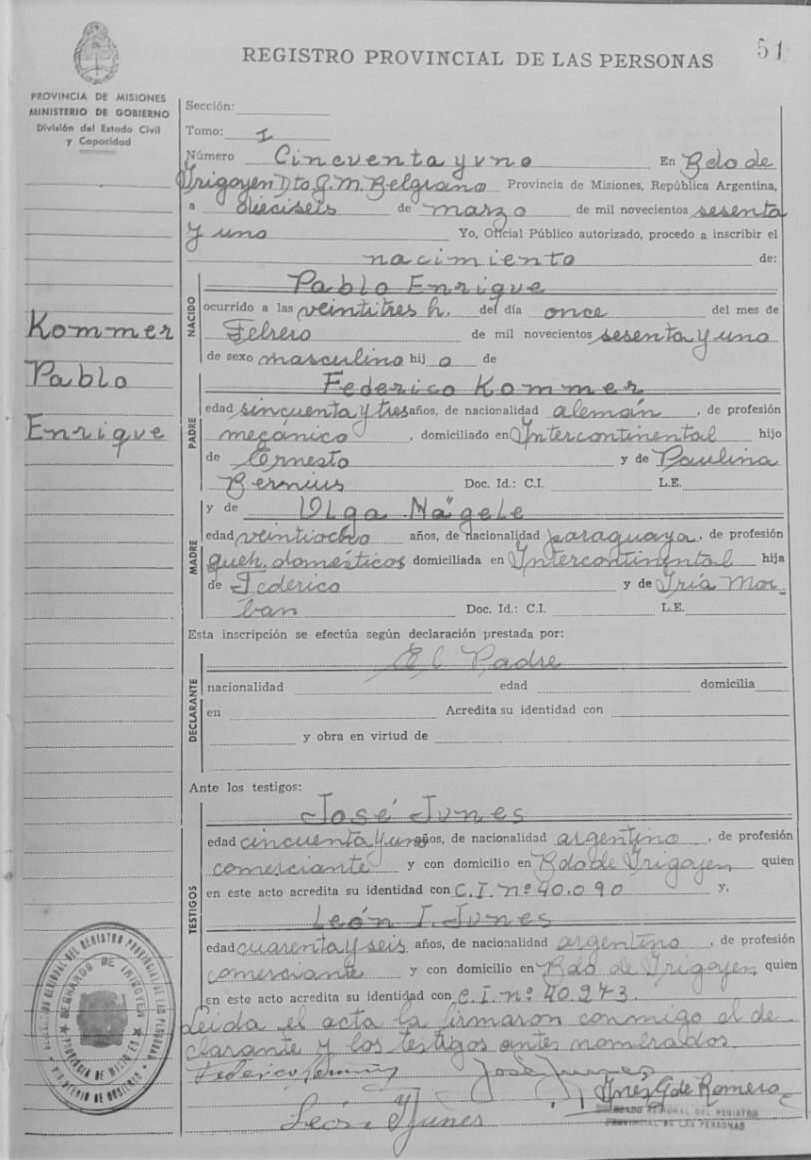 REGISTRO PROVINCIAL DE LAS PERSONAS 51
PROVINCIA DE MISIONES
MINISTERIO DE GOBIERNO
División del Estado Civil
y Capacidad
Kommer
Pablo
Enrique
Sección:
Tomo: 1
Número Cincuenta y uno En Bdo de
Irigoyen Dto G. M. Belgrano Provincia de Misiones, República Argentina,
a dieciseis de marzo de mil novecientos sesenta
y uno Yo, Oficial Público autorizado, procedo a inscribir el
nacimiento de:
NACIDO
Pablo Enrique
ocurrido a las veintitres h. del día once del mes de
Febrero de mil novecientos sesenta y uno
de sexo masculino hij o de
PADRE
Federico Kommer
edad sincuenta y tres años, de nacionalidad alemán, de profesión
mecánico, domiciliado en Intercontinental hijo
de Ernesto y de Paulina
Bernius Doc. Id.: C.I. L.E.
MADRE
y de Olga Nägele
edad veintiocho años, de nacionalidad paraguaya, de profesión
queh. domésticos domiciliada en Intercontinental hija
de Federico y de Iria Mor-
ban Doc. Id.: C.I. L.E.
Esta inscripción se efectúa según declaración prestada por:
DECLARANTE
El Padre
nacionalidad edad domicilia
en Acredita su identidad con
y obra en virtud de
Ante los testigos:
TESTIGOS
José Junes
edad cincuenta y uno años, de nacionalidad argentino, de profesión
comersciante y con domicilio en Bdo de Irigoyen quien
en este acto acredita su identidad con C.I. nº 40.090 y,
León I. Junes
edad cuarenta y seis años, de nacionalidad argentino, de profesión
comersciante y con domicilio en Bdo de Irigoyen quien
en este acto acredita su identidad con C.I. nº 40.273.
Leida el acta la firmaron conmigo el de-
clarante y los testigos antes nombrados.
Federico José Junes
Inez G de Romero
León Junes
DELEGADO REGIONAL DEL REGISTRO
PROVINCIAL DE LAS PERSONAS
REGISTRO PROVINCIAL DE LAS PERSONAS
BERNARDO DE IRIGOYEN
PROVINCIA DE MISIONES